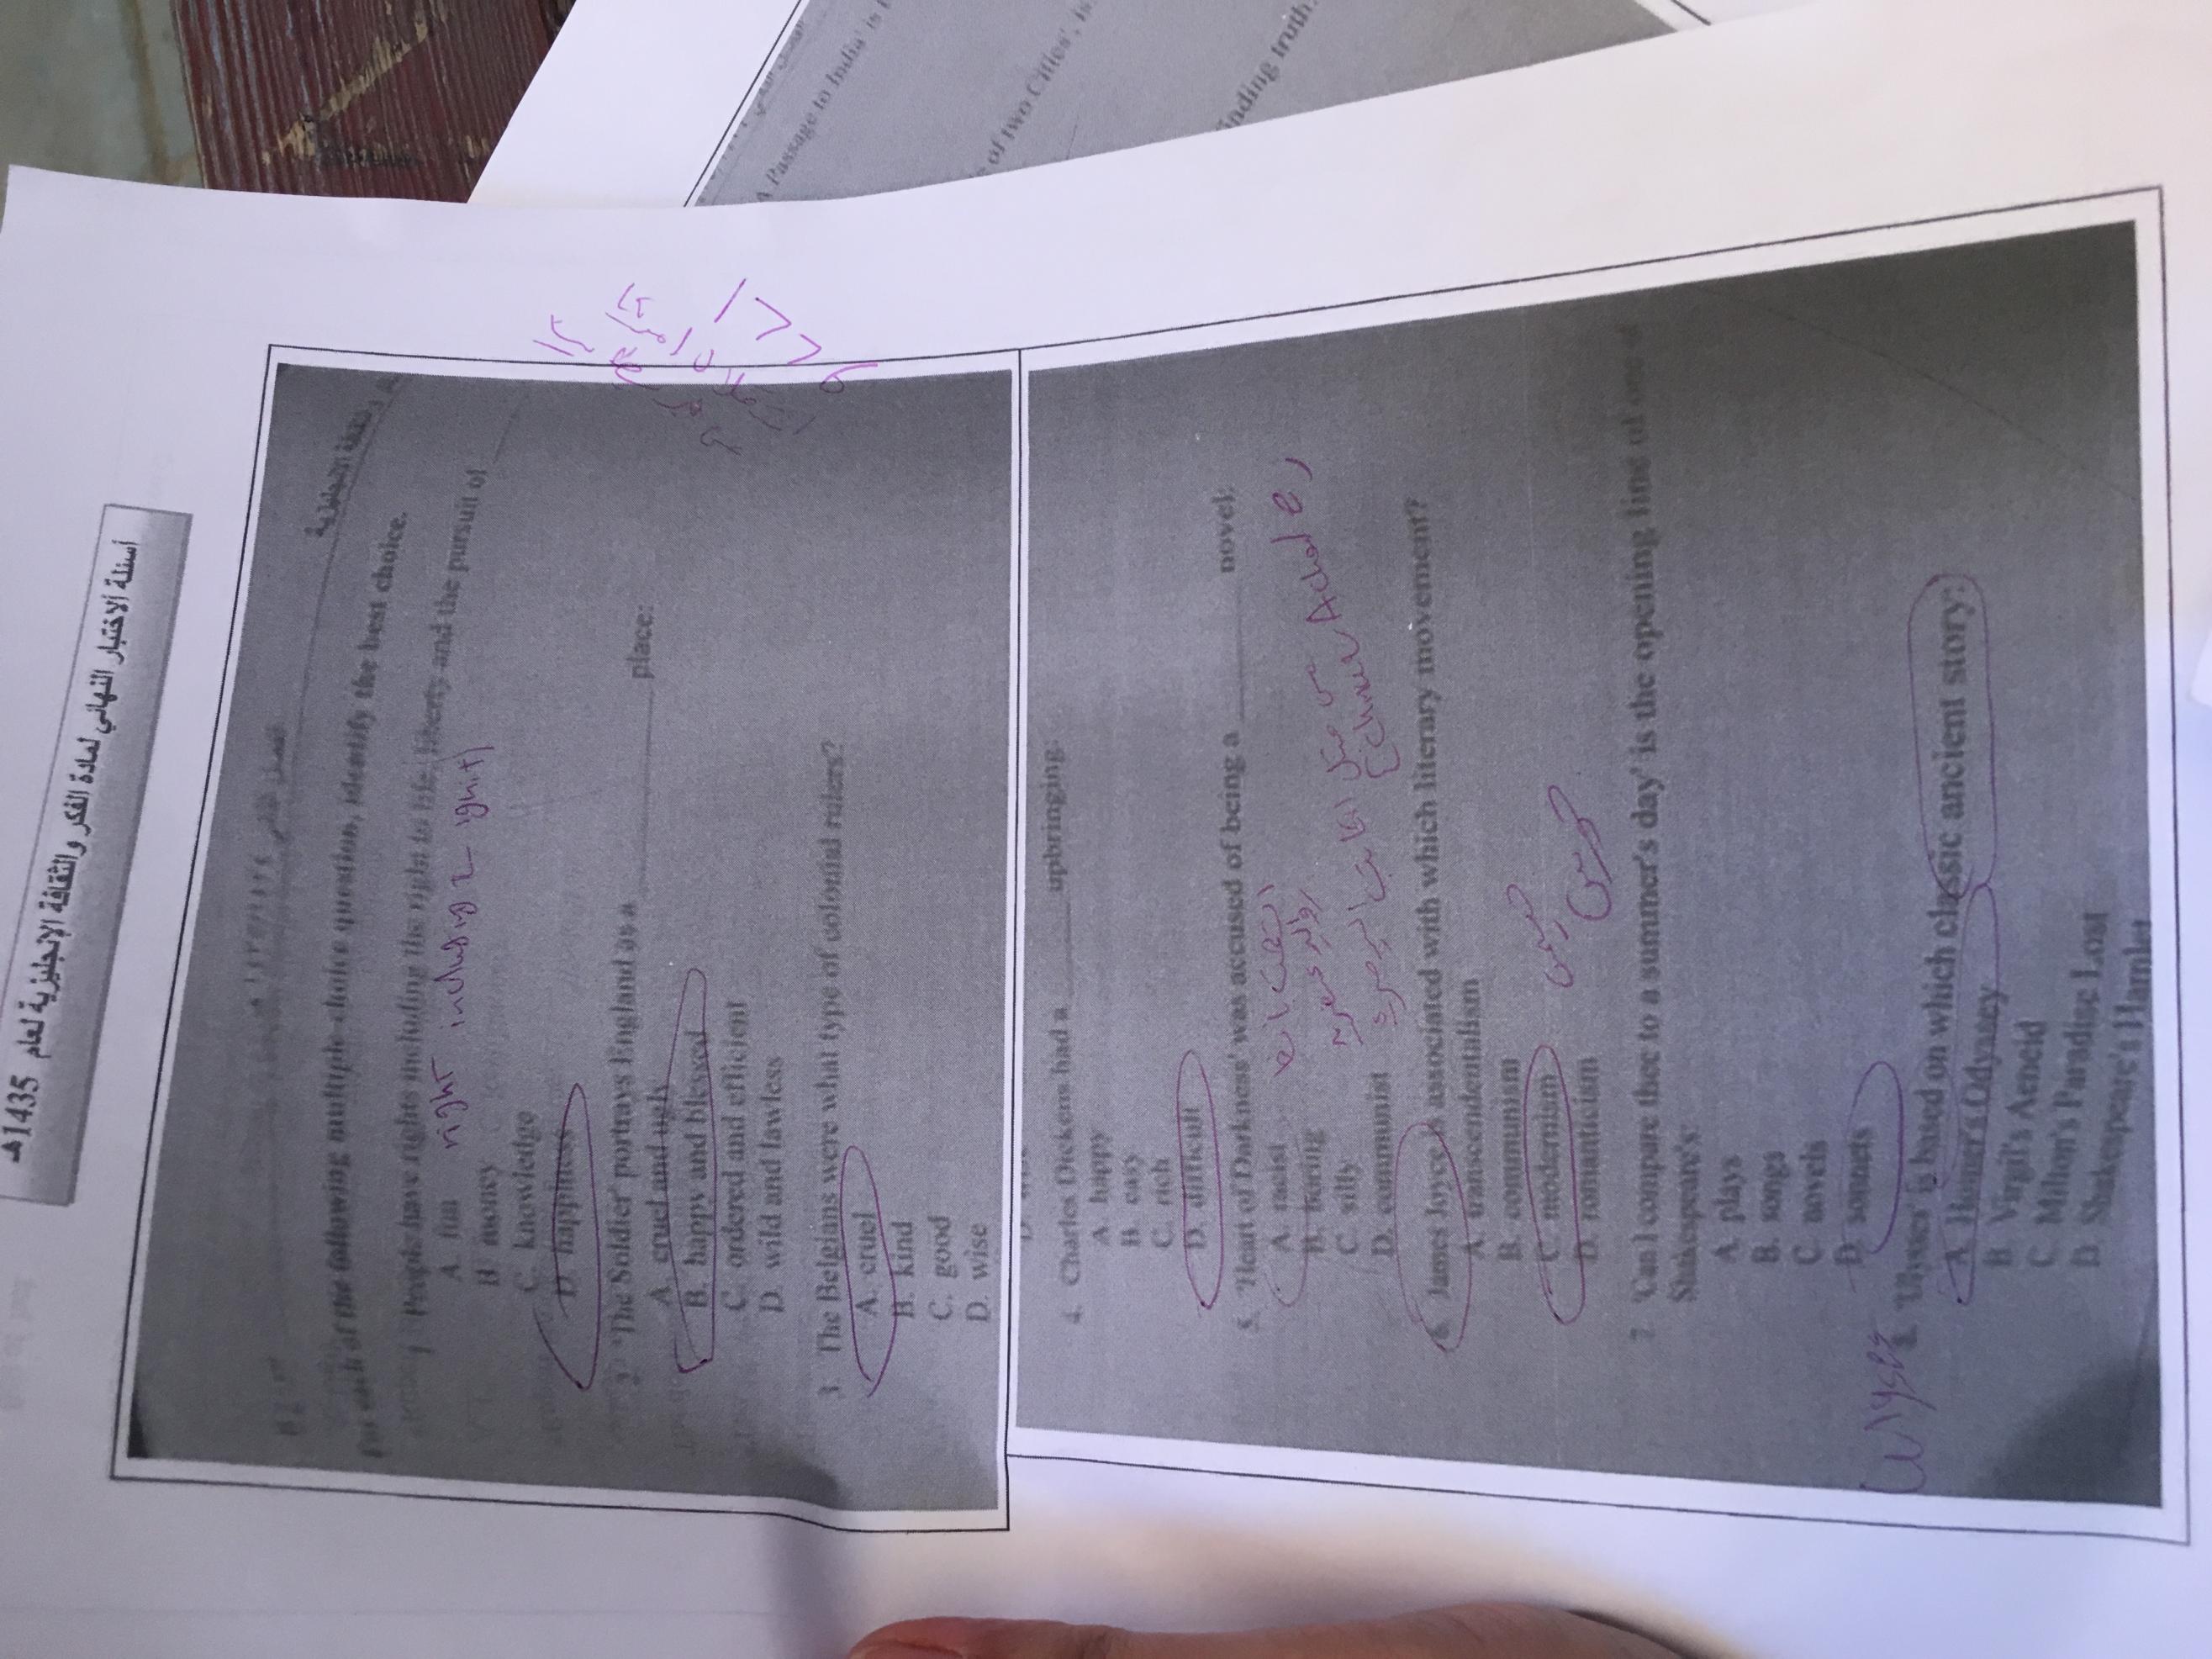 أسئلة الاختبار النهائي لمادة الفكر والثقافة الإنجليزية لعام 1435هـ
of the following multiple-choice question, identify the best choice.
1 People have rights including the right to life, liberty and the pursuit of
A. fun
right including 2
B money
C. knowledge
D happiness
1776
2 'The Soldier' portrays England as a ______ place:
A. cruel and ugly
B. happy and blessed
C. ordered and efficient
D. wild and lawless
3 The Belgians were what type of colonial rulers?
A. cruel
B. kind
C. good
D. wise
4. Charles Dickens had a ______ upbringing.
A. happy
B. easy
C. rich
D. difficult
5. 'Heart of Darkness' was accused of being a ______ novel:
A. racist
B. boring
C. silly
D. communist
6. James Joyce is associated with which literary movement?
A. transcendentalism
B. communism
C. modernism
D. romanticism
7. 'Can I compare thee to a summer's day' is the opening line of one of
Shakespeare's:
A. plays
B. songs
C. novels
D. sonnets
8. 'Ulysses' is based on which classic ancient story:
A. Homer's Odyssey
B. Virgil's Aeneid
C. Milton's Paradise Lost
D. Shakespeare's Hamlet
A Passage to India' is
of two Cities', is
finding truth.